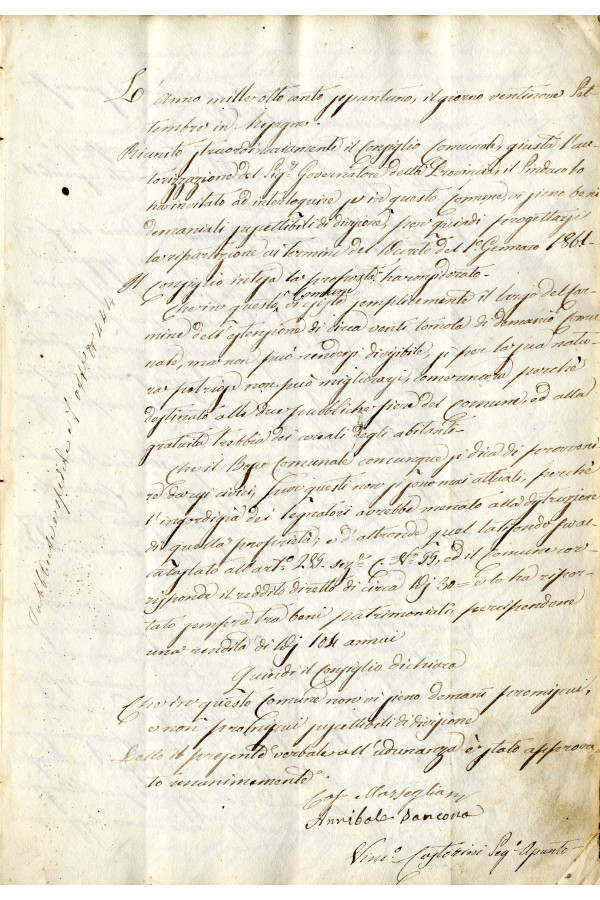 L'anno mille otto cento sessantuno, il giorno ventinove Set-
tembre in
Riunito straordinariamente il Consiglio Comunale, giusta l'au-
torizzazione del Sig.r Governatore della Provincia, il Sindaco lo
ha invitato ad interloquire se in questo Comune vi sieno beni
demaniali suscettibili di divisione, per quindi progettarsi
la ripartizione ai termini del Decreto del 1° Gennaro 1861.
Il Consiglio intesa la proposta ha considerato
Che in questo Comune esiste semplicemente il luogo del Car-
mine dell'estensione di circa venti tomola di demanio Comu-
nale, ma non può rendersi divisibile, sì per la sua natu-
ra petrosa non può migliorarsi, come ancora perchè
destinato alle due pubbliche fiere del Comune, ed alla
gratuita trebbia dei cereali degli abitanti.
Che il Bosco Comunale comunque si dica di provveni-
re usi civici, pure questi non si sono mai attuati, perchè
l'ingordigia dei legnatori avrebbe menato alla distruzione
di quella proprietà; e d'altronde quel latifondo fu ac-
catastato all'art.° 289. Sez.e C. N.° 99, ed il Comune cor-
risponde il reddito diretto di circa 30 = e lo ha ripor-
tato sempre tra beni patrimoniali, percependone
una rendita di 104 annui
Quindi il Consiglio dichiara
Che in questo Comune non vi sieno demani promiscui,
e non suscettibili di divisione
Letto il presente verbale all'adunanza è stato approva-
to unanimemente.
Annibale Dancona